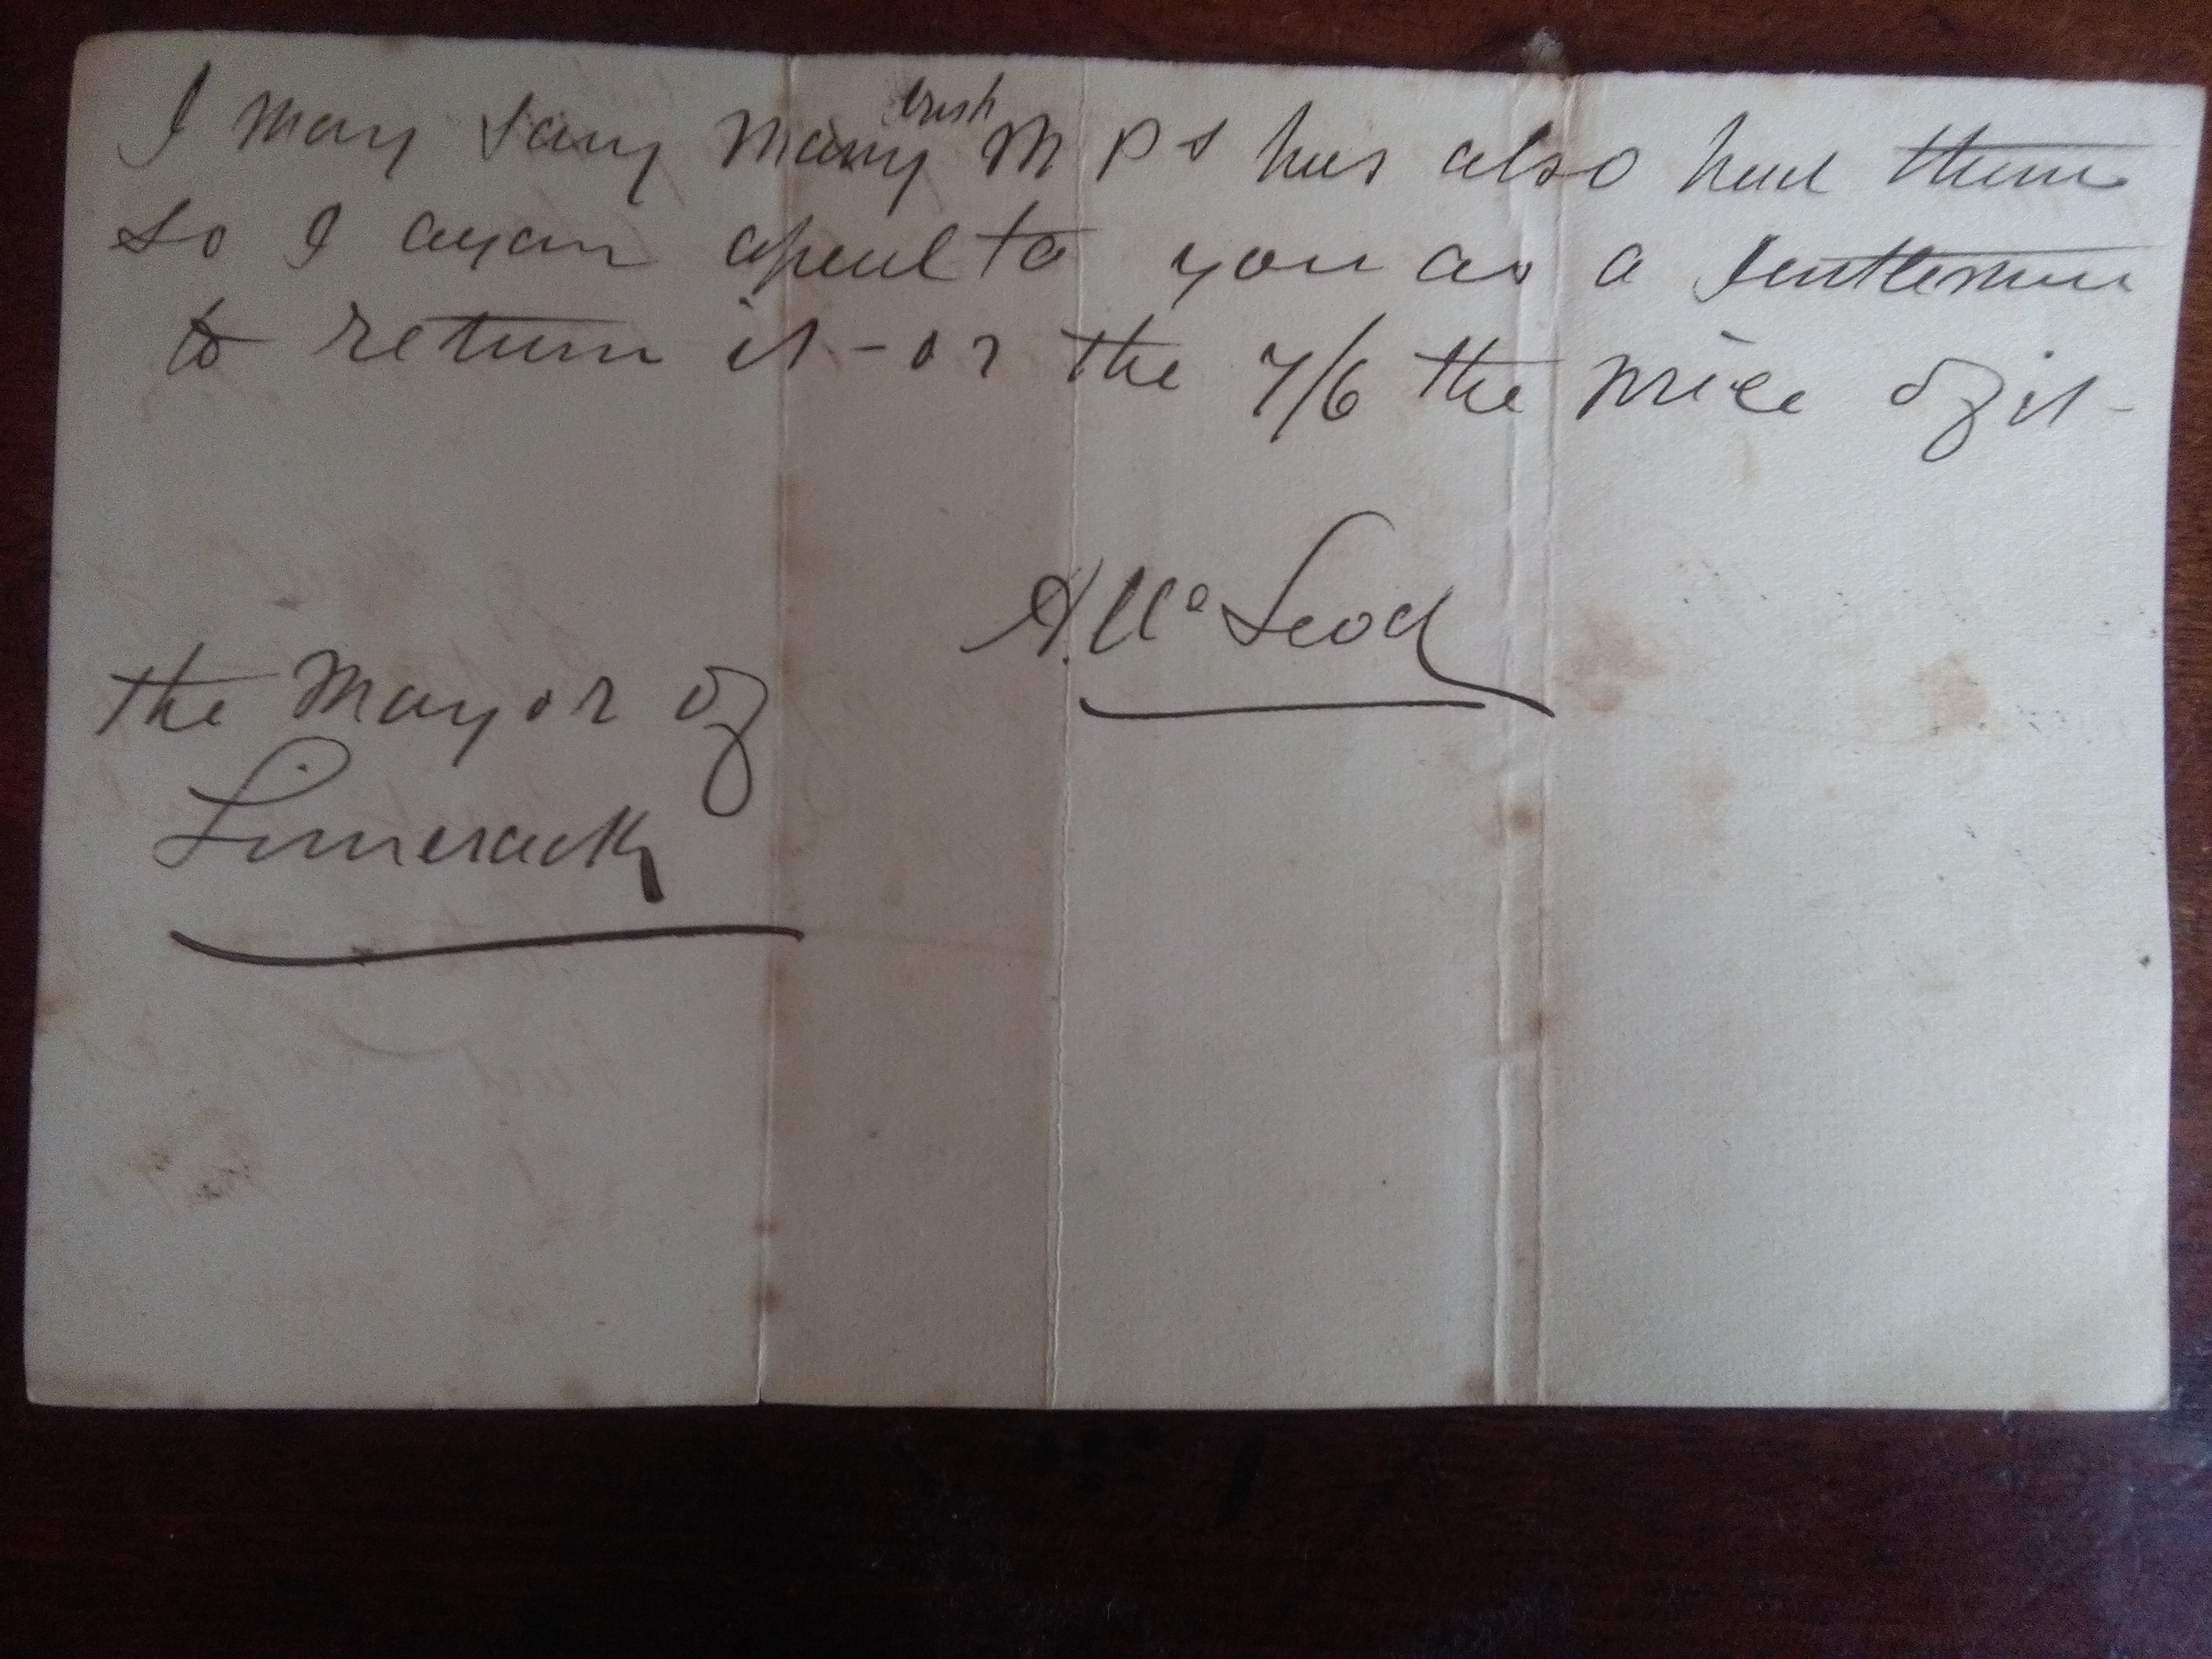 I may say many Irish M Ps has also had them
so I again apeal to you as a Jentleman
to return it - or the 7/6 the price of it -
A. Mc Leod
the Mayor of
Limerack